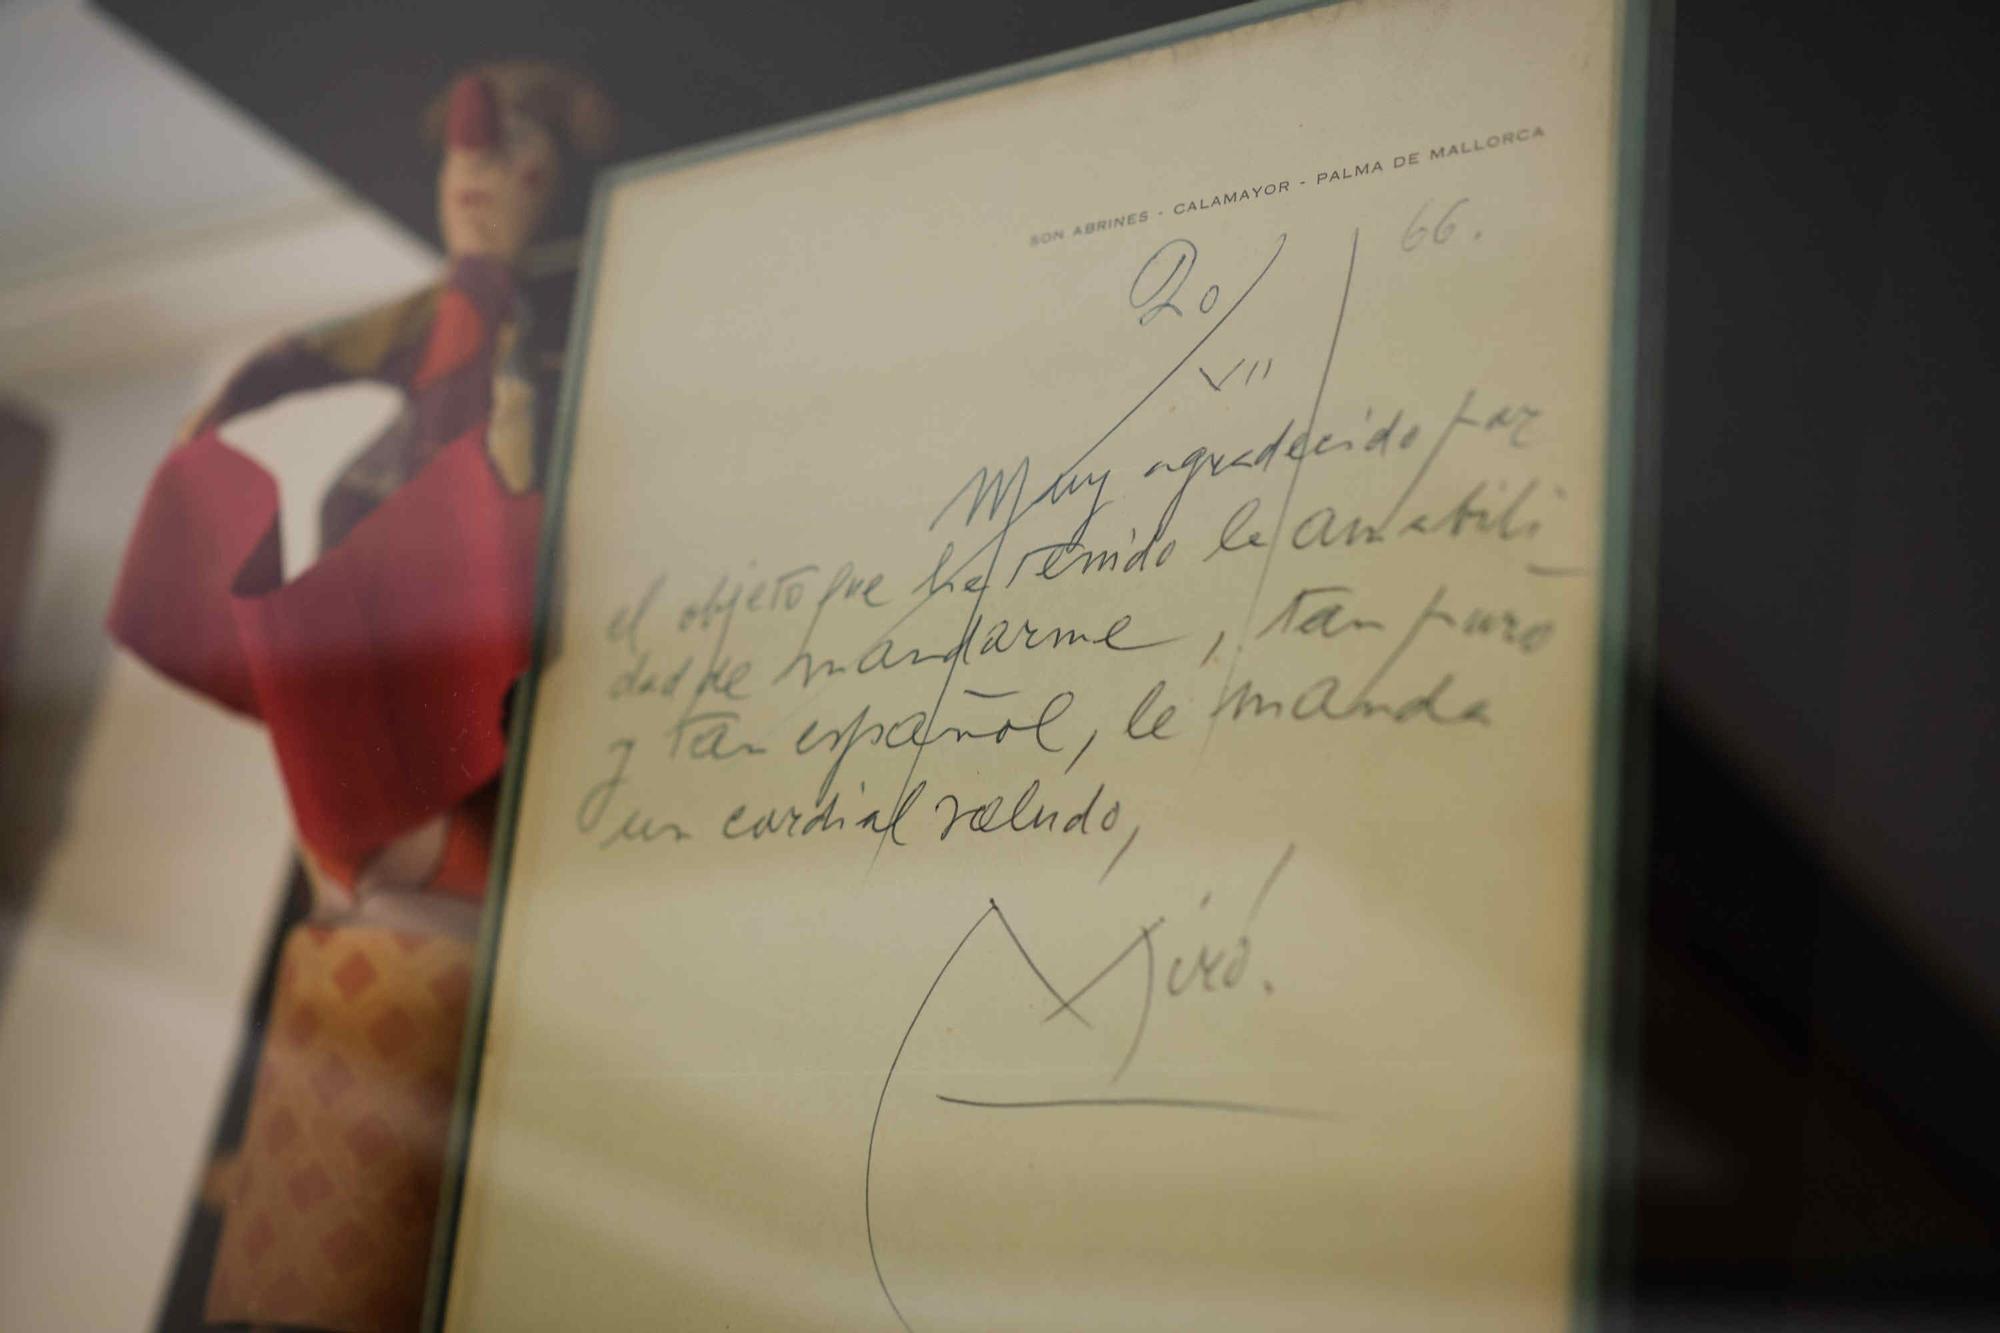 SON ABRINES - CALAMAYOR - PALMA DE MALLORCA
20/VII/66.
Muy agradecido por
el objeto que ha tenido la amabili-
dad de mandarme, tan puro
y tan español, le manda
un cordial saludo,
Miró.